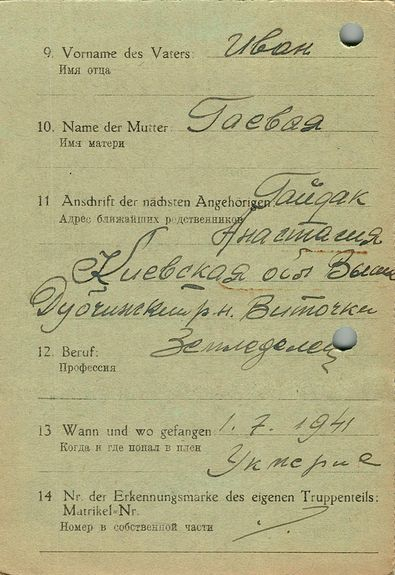 9. Vorname des Vaters: Иван
Имя отца
10. Name der Mutter: Гаевая
Имя матери
11 Anschrift der nächsten Angehörigen Гайдак
Адрес ближайших родственников Анастасия
Киевская обл Выше
Дубочинский р.н. Виточки
12. Beruf: Земледелец
Профессия
13 Wann und wo gefangen 1. 7. 1941
Когда и где попал в плен
14 Nr. der Erkennungsmarke des eigenen Truppenteils:
Matrikel-Nr.
Номер в собственной части